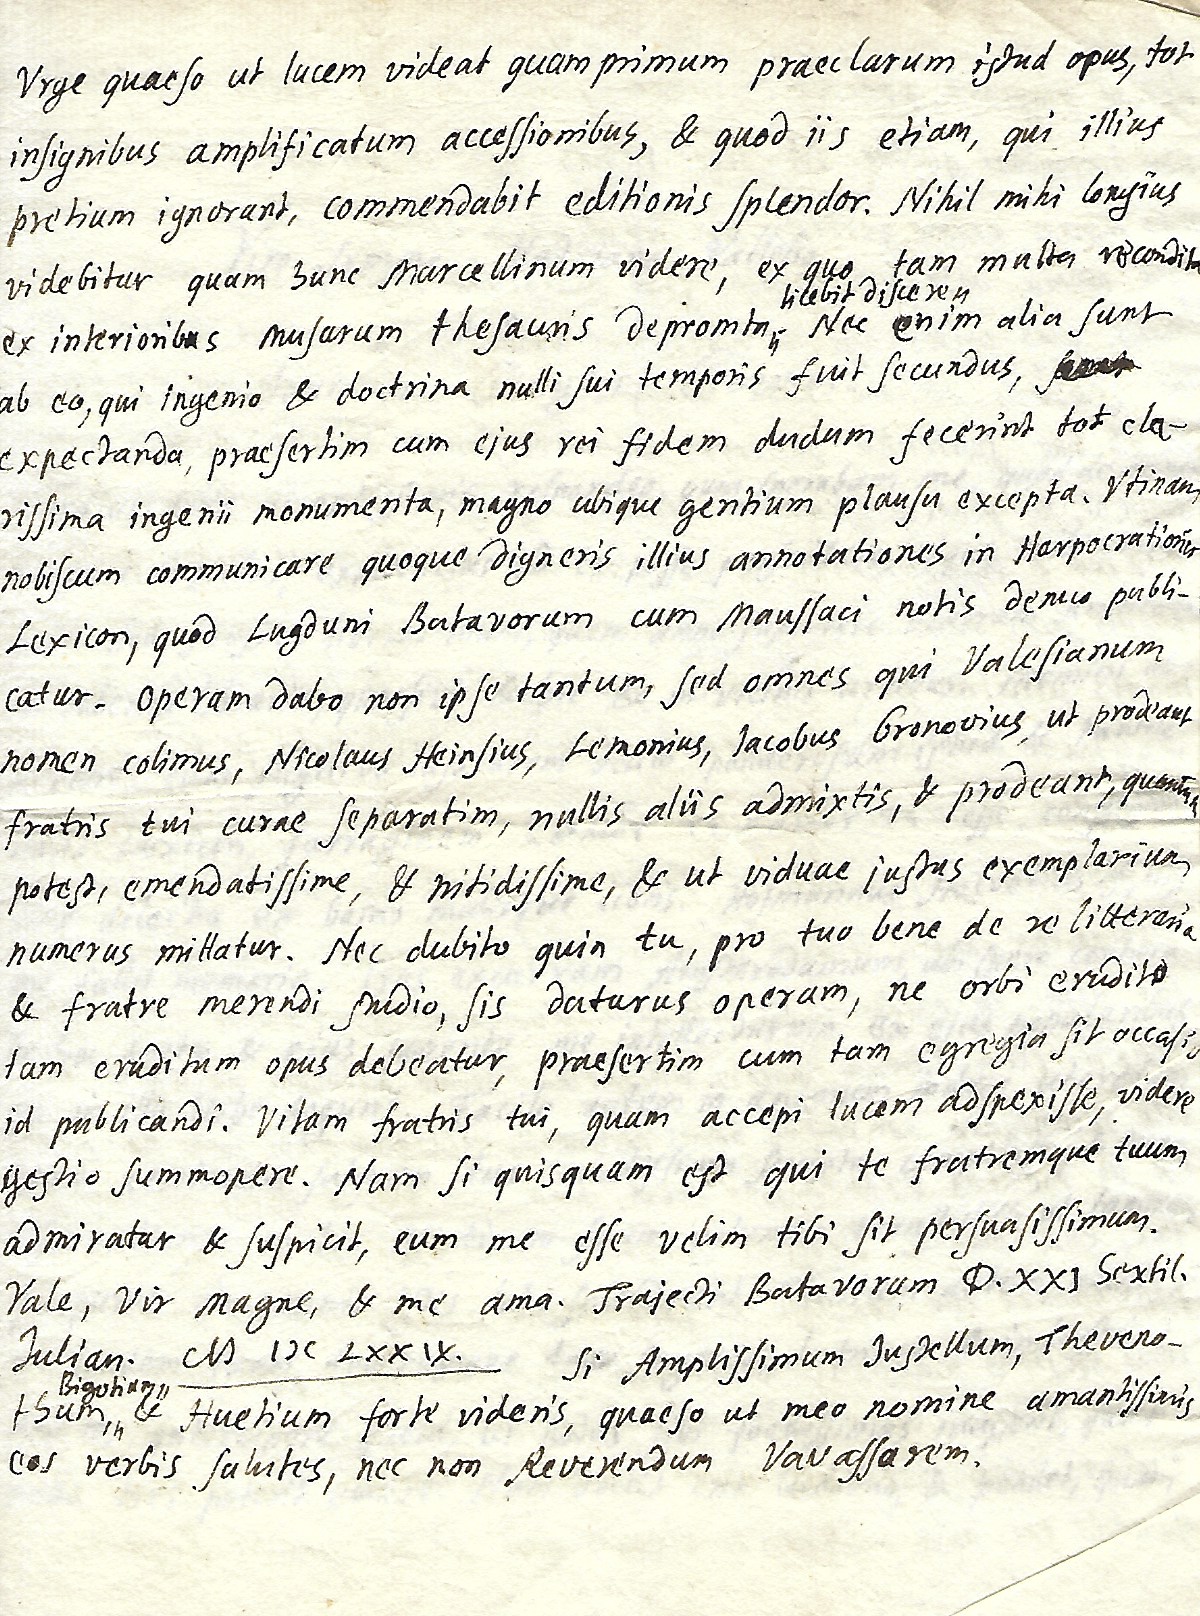 Urge quaeso ut lucem videat quamprimum praeclarum istud opus, tot
insignibus amplificatum accessionibus, & quod iis etiam, qui illius
pretium ignorant, commendabit editionis splendor. Nihil mihi longius
videbitur quam hunc Marcellinum videre, ex quo tam multa recondita
licebit discere
ex interioribus Musarum thesauris depromta. Nec enim alia sunt
ab eo, qui ingenio & doctrina nulli sui temporis fuit secundus,
expectanda, praesertim cum ejus rei fidem dudum fecerint tot cla-
rissima ingenii monumenta, magno ubique gentium plausu excepta. Vtinam
nobiscum communicare quoque digneris illius annotationes in Harpocrationis
Lexicon, quod Lugduni Batavorum cum Maussaci notis denuo publi-
catur. Operam dabo non ipse tantum, sed omnes qui Valesianum
nomen colimus, Nicolaus Heinsius, Lemonius, Iacobus Gronovius, ut prodeant
fratris tui curae separatim, nullis aliis admixtis, & prodeant, quantum
potest, emendatissime, & nitidissime, & ut viduae justus exemplarium
numerus mittatur. Nec dubito quin tu, pro tuo bene de re litteraria
& fratre merendi studio, sis daturus operam, ne orbi erudito
tam eruditum opus debeatur, praesertim cum tam egregia sit occasio
id publicandi. Vitam fratris tui, quam accepi lucem adspexisse, videre
gestio summopere. Nam si quisquam est qui te fratremque tuum
admiratur & suspicit, eum me esse velim tibi sit persuasissimum.
Vale, Vir Magne, & me ama. Trajecti Batavorum D. XXI Sextil.
Julian. CIↃ IↃC LXXIX. Si Amplissimum Justellum, Theveno-
Bigotium
tium, & Huetium forte videris, quaeso ut meo nomine amantissimis
eos verbis salutes, nec non Reverendum Vavassorem.